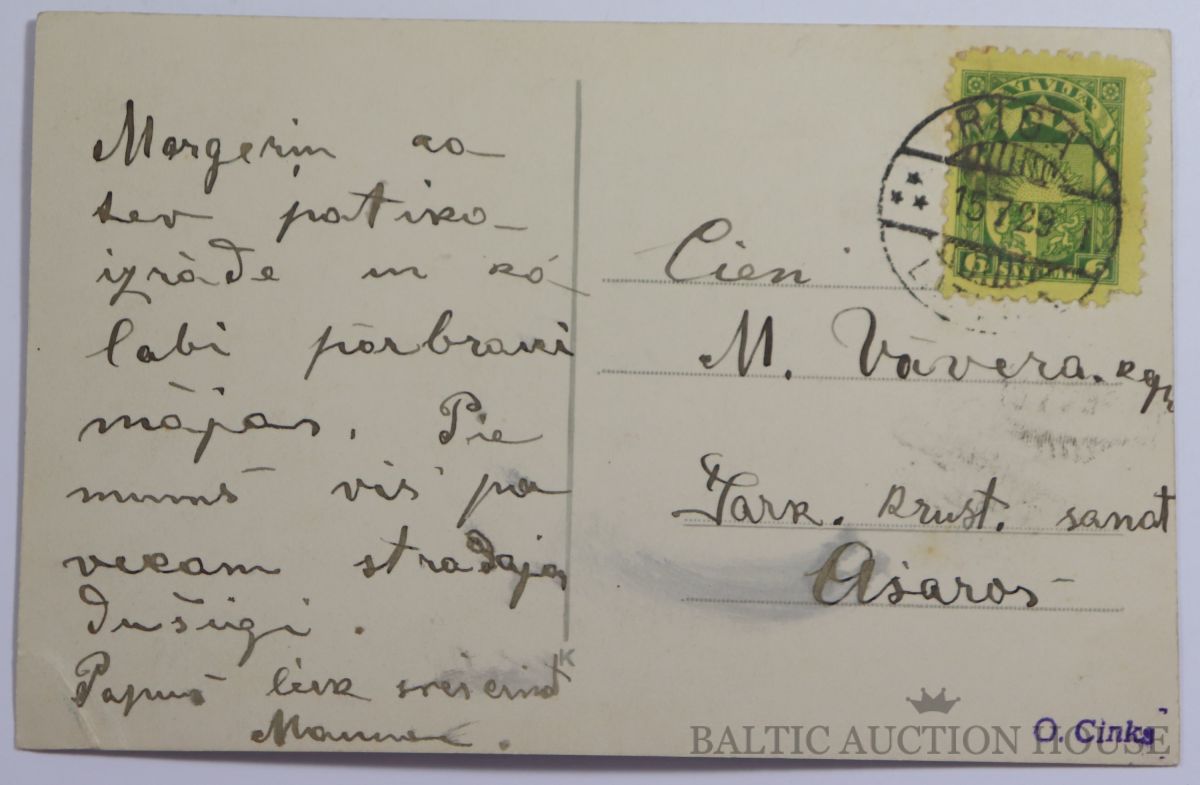 Margeriņ ao
tev patika
izrāde un kā
labi pārbrauci
mājās. Pie
mums vis pa
vecam strādājam
dūšīgi.
Papus liek sveicināt
Mamma.
LATVIJA
RIGA
15.7.29
LATVIJA
6 6
Cien
M. Vāvera kgm
Sark. krust. sanat
Asaros
K
O. Cinks
BALTIC AUCTION HOUSE